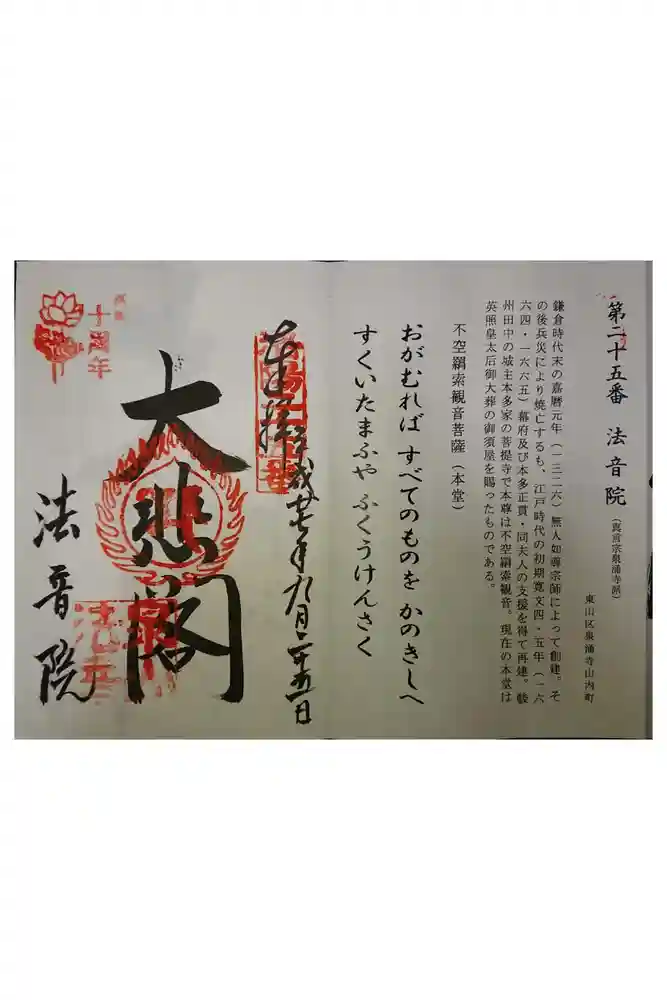 第二十五番 法音院（真言宗泉涌寺派）
東山区泉涌寺山内町
鎌倉時代末の嘉暦元年（一三二六）無人如導宗師によって創建。そ
の後兵災により焼亡するも、江戸時代の初期寛文四・五年（一六
六四・一六六五）幕府及び本多正貫・同夫人の支援を得て再建。駿
州田中の城主本多家の菩提寺で本尊は不空羂索観音。現在の本堂は
英照皇太后御大葬の御須屋を賜ったものである。
不空羂索観音菩薩（本堂）
おがむれば すべてのものを かのきしへ
すくいたまふや ふくうけんさく
奉拝 平成廿七年九月二十五日
大悲閣
法音院
十周年